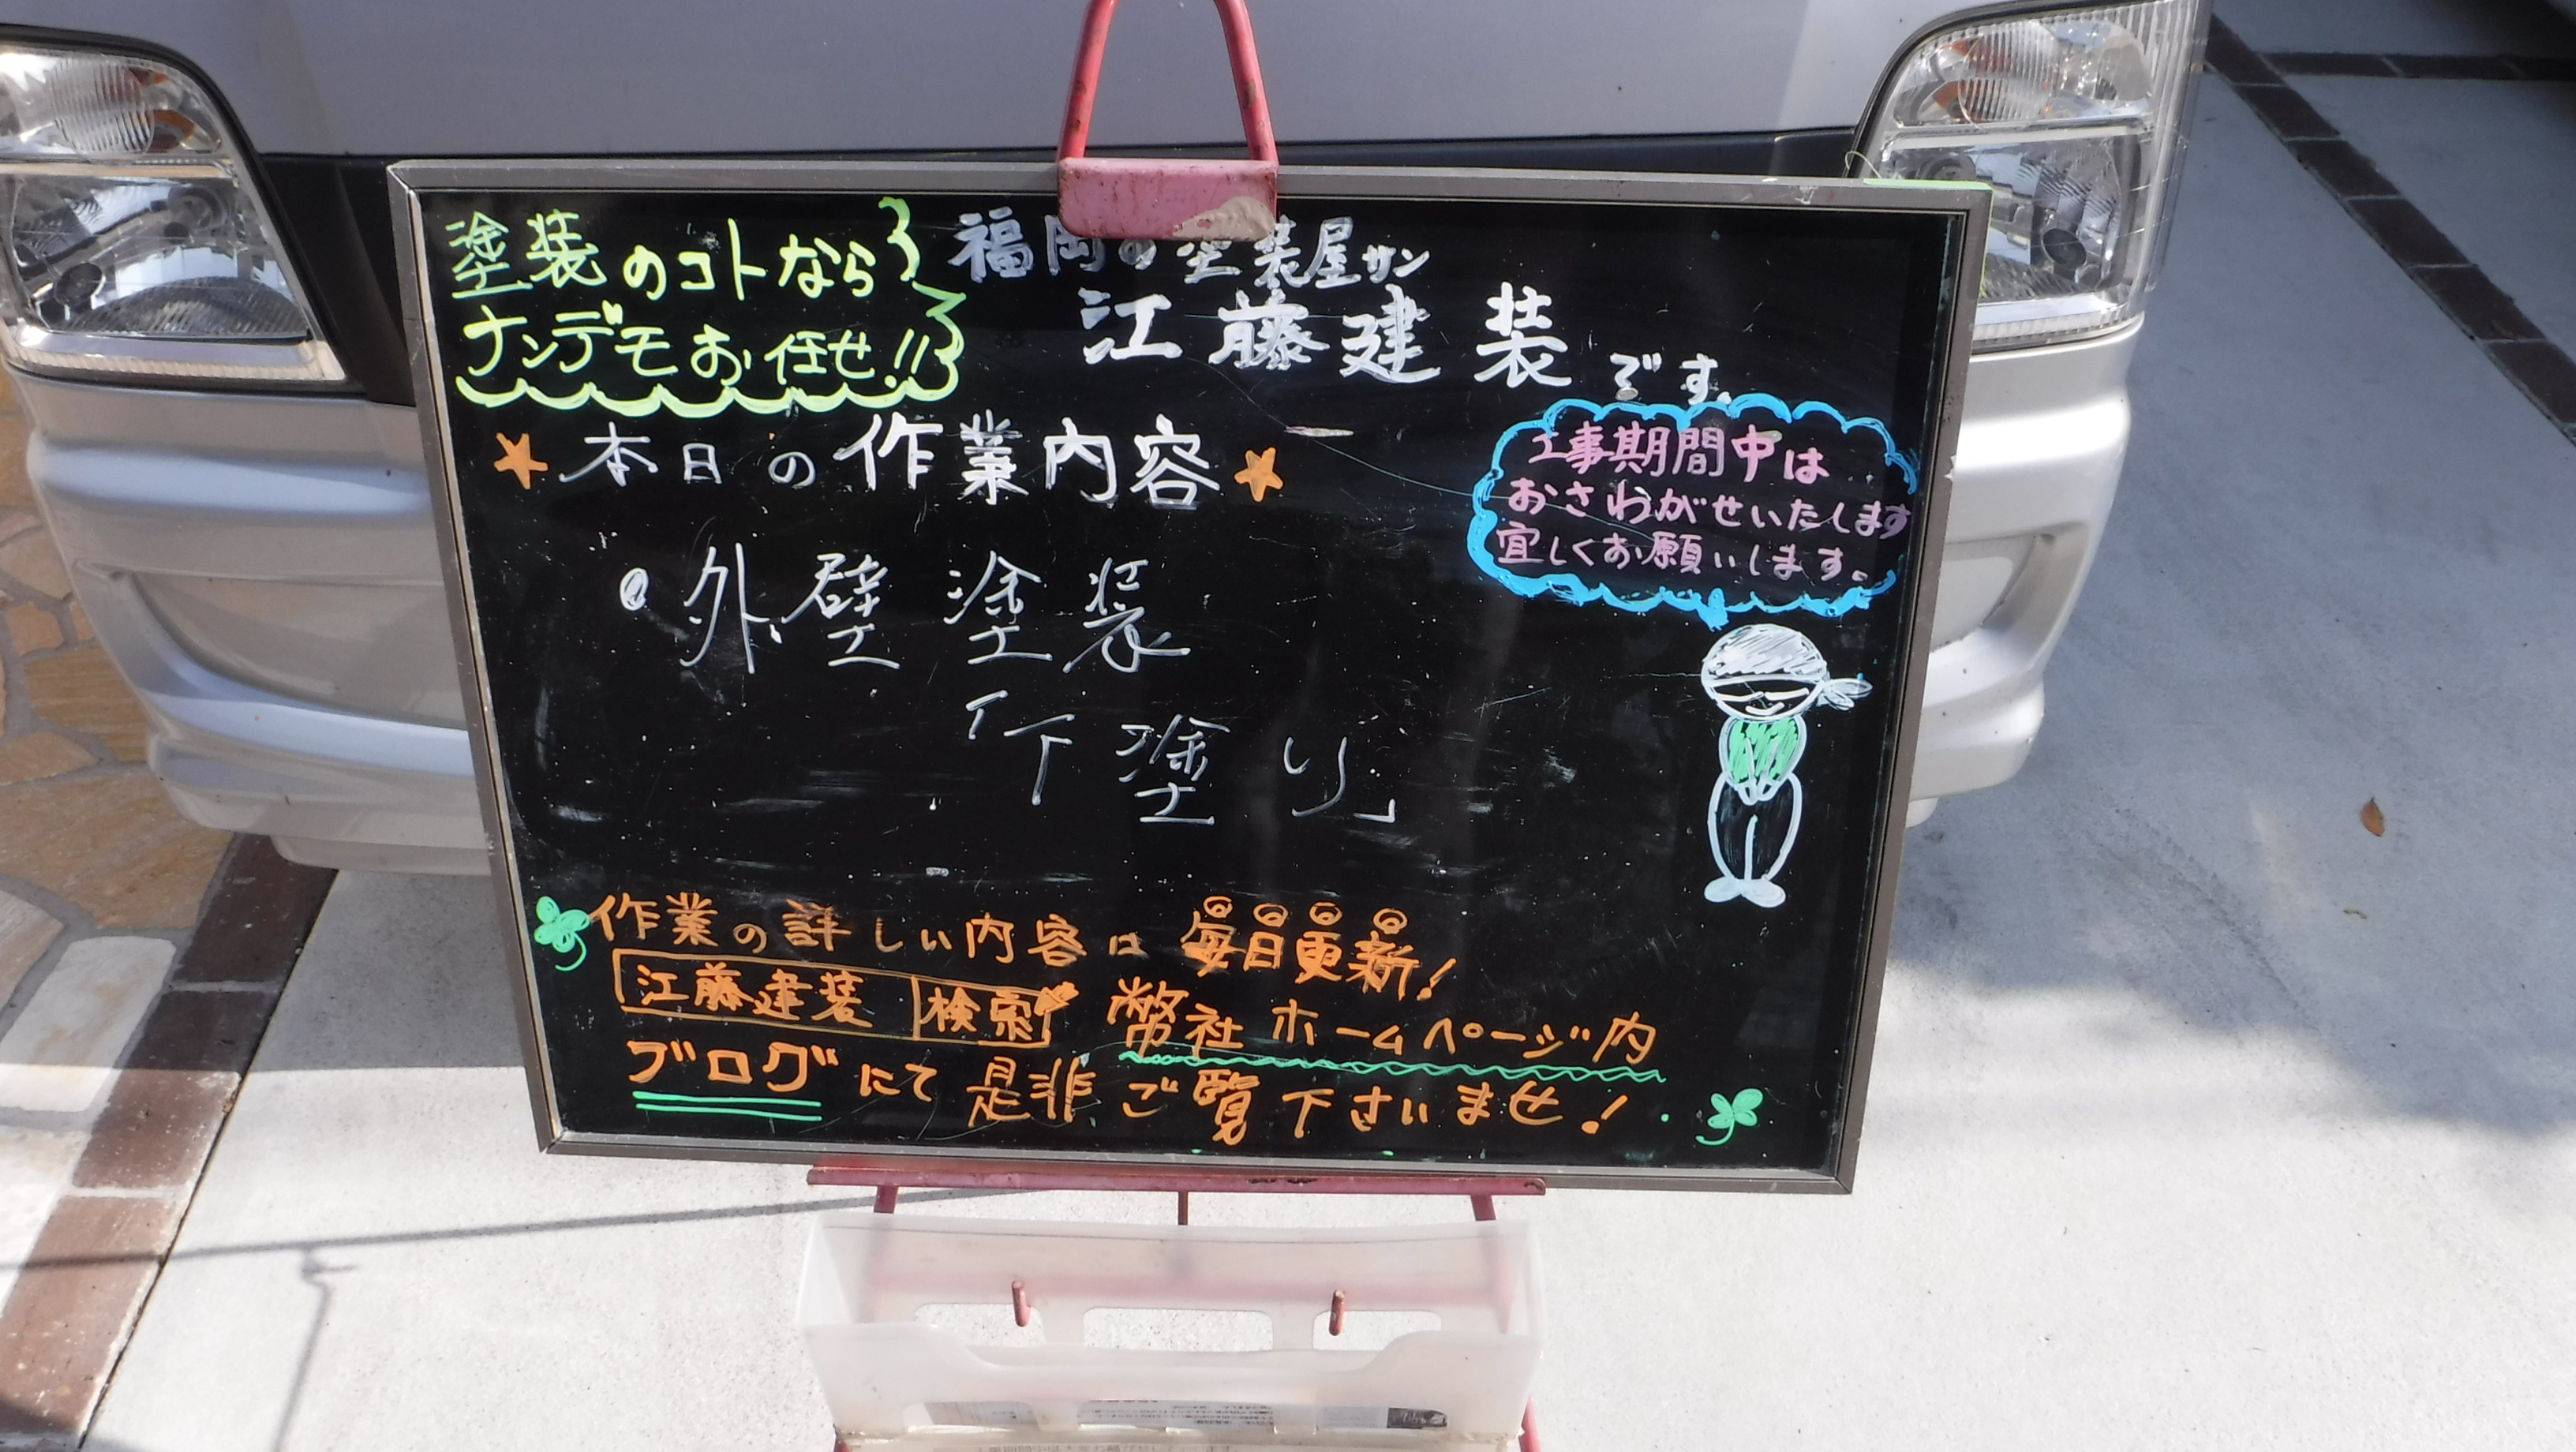 塗装のコトなら
ナンデモお任せ!!
福岡の塗装屋サン
江藤建装です。
★本日の作業内容★
工事期間中は
おさわがせいたします
宜しくお願いします。
・外壁塗装
「下塗り」
作業の詳しい内容は毎日更新!
江藤建装 検索 幣社ホームページ内
ブログにて是非ご覧下さいませ!